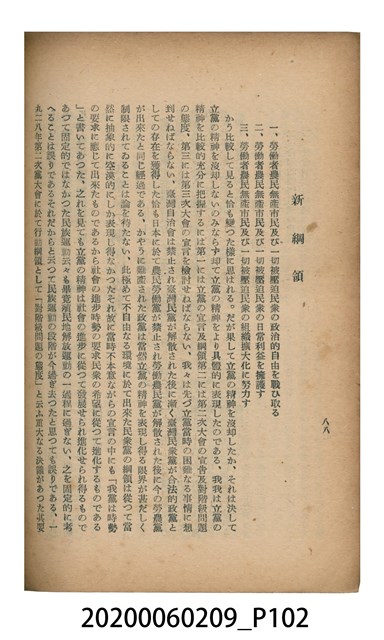 八八
新綱領
一、勞働者農民無產市民及び一切被壓迫民衆の政治的自由を戰ひ取る
二、勞働者農民無產市民及び一切被壓迫民衆の日常利益を擁護す
三、勞働者農民無產市民及び一切被壓迫民衆の組織擴大化に努力す
かう比較して見ると恰も變つた樣に思はれる。だが果して立黨の精神を沒却したか、それは決して
立黨の精神を沒却しないのみならず却て立黨の精神をより具體的に表現したのである、我我は立黨の
精神を比較的充分に把握するには第一には立黨の宣言及綱領第二には第二次大會の宣言及對階級問題
の態度、第三には第三次大會の宣言を檢討せねばならない、我々は先づ立黨當時の困難なる事情に想
到せねばならない、臺灣自治會は禁止され臺灣民黨が解散された後に漸く臺灣民衆黨が合法的政黨と
しての存在を獲得した恰も日本に於て農民勞働黨が禁止され勞働農民黨が解散された後に今の勞農黨
が出來たと同じ經過である、かやうに難產された政黨は當然立黨の精神を表現し得る限界が甚だしく
制限されてゐることは勿論を待たない、此極めて不自由なる環境に於て出來た民衆黨の綱領は從つて當
然に抽象的に空漠的にしか表現し得なかつたそれ故に當時不本意ながらの宣言の中にも「我黨は時勢
の要求に應じて出來たものであるから社會の進步時勢の要求民衆の希望に從つて進化するものである
」と書いてあつた、之れを見ても立黨の精神は社會の進步に從つて發展せられ進化せられ得るもので
あつて固定的ではなかつた民族運動云々も畢竟殖民地解放運動の一過程に過ぎない、之を固定的に考
へることは誤りであるそれだからと云つて民族運動の段階が今過ぎ去つたと思つても誤りである、一
九二八年第二次黨大會に於て行動綱領として「對階級問題の態度」と云ふ重大なる決議があつた其要
20200060209_P102